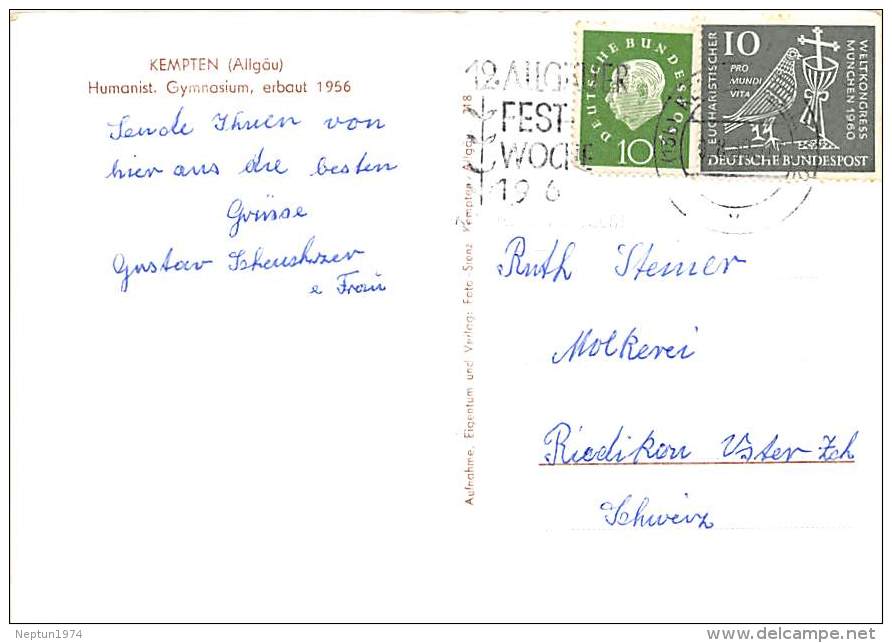 KEMPTEN (Allgäu)
Humanist. Gymnasium, erbaut 1956
Sende Ihnen von
hier aus die besten
Grüsse
Gustav
e Frau
Aufnahme, Eigentum und Verlag: Foto Sienz Kempten Allgäu 218
12. ALLGÄUER
FEST-
WOCHE
196
DEUTSCHE BUNDESPOST
10
EUCHARISTISCHER
10
PRO
MUNDI
VITA
WELTKONGRESS
MÜNCHEN 1960
DEUTSCHE BUNDESPOST
Ruth Steiner
Molkerei
Riedikon Uster Zch
Schweiz
Neptun1974
www.delcampe.net